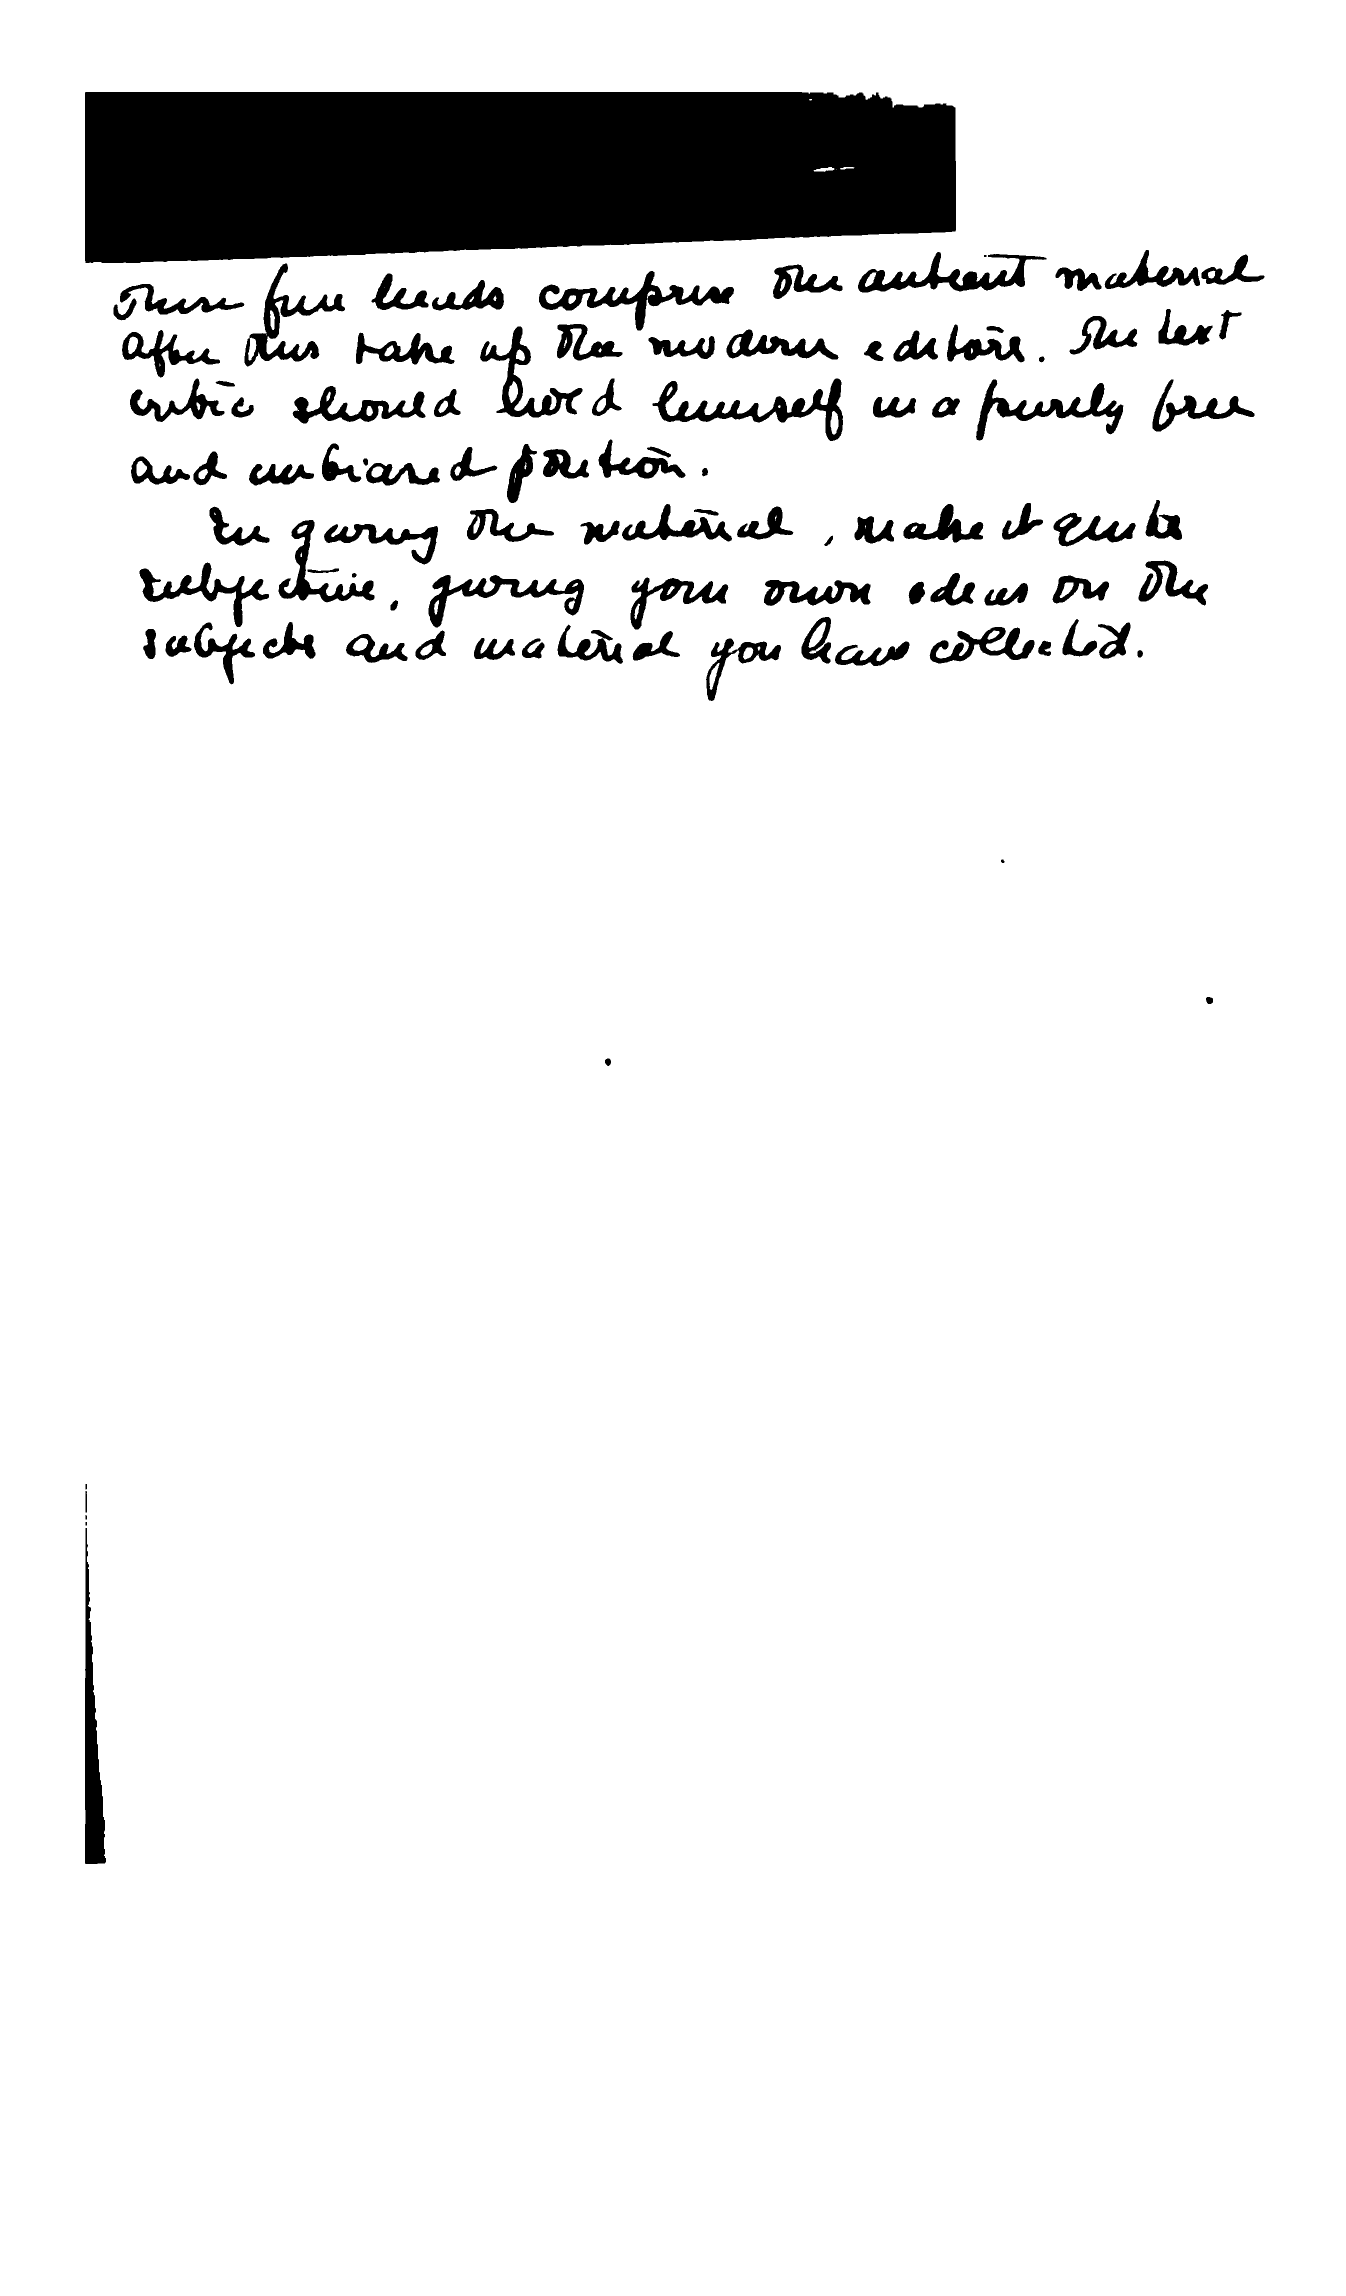 These five heads comprise the antient material
After this take up the modern editors. The text
critic should hold himself in a purely free
and unbiased position.
In giving the material, make it quite
subjective, giving your own ideas on the
subjects and material you have collected.